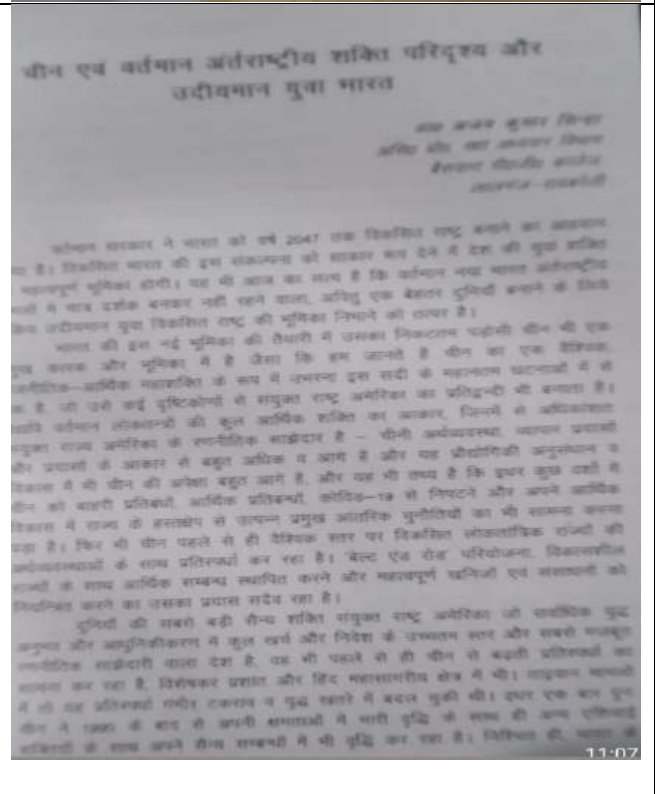 चीन एवं वर्तमान अंर्तराष्ट्रीय शक्ति परिदृश्य और
उदीयमान युवा भारत
अजय कुमार सिन्हा
असि० प्रो० रक्षा अध्ययन विभाग
बैसवारा पी०जी० कालेज
लालगंज-रायबरेली
वर्तमान सरकार ने भारत को वर्ष 2047 तक विकसित राष्ट्र बनाने का आवहान
है। विकसित भारत की इस संकल्पना को साकार रूप देने में देश की युवा शक्ति
महत्वपूर्ण भूमिका होगी। यह भी आज का सत्य है कि वर्तमान नया भारत अंर्तराष्ट्रीय
में मात्र दर्शक बनकर नहीं रहने वाला, अपितु एक बेहतर दुनियाँ बनाने के लिये
उदीयमान युवा विकसित राष्ट्र की भूमिका निभाने को तत्पर है।
भारत की इस नई भूमिका की तैयारी में उसका निकटतम पड़ोसी चीन भी एक
कारक और भूमिका में है जैसा कि हम जानते है चीन का एक वैश्विक,
आर्थिक महाशक्ति के रूप में उभरना इस सदी के महानतम घटनाओं में से
है, जो उसे कई दृष्टिकोणों से संयुक्त राष्ट्र अमेरिका का प्रतिद्वन्दी भी बनाता है।
वर्तमान लोकतन्त्रों की कुल आर्थिक शक्ति का आकार, जिनमें से अधिकांशतः
राज्य अमेरिका के रणनीतिक साझेदार है – चीनी अर्थव्यवस्था, व्यापार प्रयासों
और प्रयासों के आकार से बहुत अधिक व आगे है और यह प्रौद्योगिकी अनुसंधान व
विकास में भी चीन की अपेक्षा बहुत आगे है, और यह भी तथ्य है कि इधर कुछ वर्षों में
चीन को बाहरी प्रतिबंधों, आर्थिक प्रतिबन्धों, कोविड-19 से निपटने और अपने आर्थिक
विकास में राज्य के हस्तक्षेप से उत्पन्न प्रमुख आंतरिक चुनौतियों का भी सामना करना
पड़ा है। फिर भी चीन पहले से ही वैश्विक स्तर पर विकसित लोकतांत्रिक राज्यों की
अर्थव्यवस्थाओं के साथ प्रतिस्पर्धा कर रहा है। 'बेल्ट एंड रोड' परियोजना, विकासशील
राज्यों के साथ आर्थिक सम्बन्ध स्थापित करने और महत्वपूर्ण खनिजों एवं संसाधनों को
नियन्त्रित करने का उसका प्रयास सदैव रहा है।
दुनियाँ की सबसे बड़ी सैन्य शक्ति संयुक्त राष्ट्र अमेरिका जो सर्वाधिक युद्ध
अनुभव और आधुनिकीकरण में कुल खर्च और निवेश के उच्चतम स्तर और सबसे मजबूत
रणनीतिक साझेदारी वाला देश है, वह भी पहले से ही चीन से बढ़ती प्रतिस्पर्धा का
सामना कर रहा है, विशेषकर प्रशांत और हिंद महासागरीय क्षेत्र में भी। ताइवान मामलों
में तो यह प्रतिस्पर्धा गंभीर टकराव व युद्ध खतरे में बदल चुकी थी। इधर एक बार पुनः
चीन ने 1990 के बाद से अपनी क्षमताओं में भारी वृद्धि के साथ ही अन्य एशियाई
शक्तियों के साथ अपने सैन्य सम्बन्धों में भी वृद्धि कर रहा है। निश्चित ही, भारत के
11:07